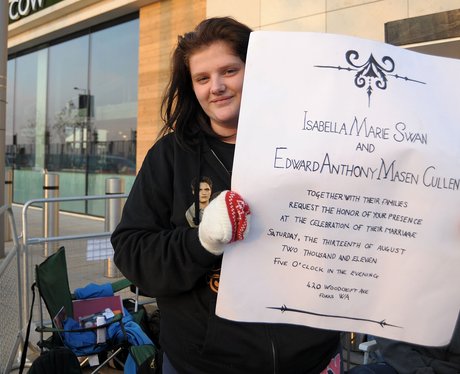 COW
Isabella Marie Swan
and
Edward Anthony Masen Cullen
together with their families
request the honor of your presence
at the celebration of their marriage
Saturday, the thirteenth of August
Two thousand and eleven
Five o'clock in the evening
420 Woodcroft Ave
Forks WA